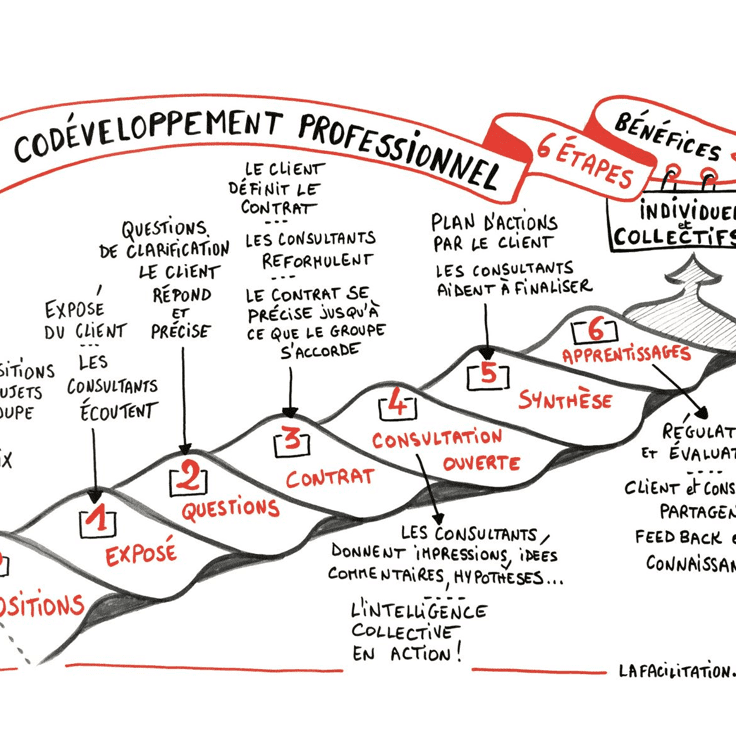 CODÉVELOPPEMENT PROFESSIONNEL
6 ÉTAPES
BÉNÉFICES
INDIVIDUEL
et
COLLECTIFS
LE CLIENT
DÉFINIT LE
CONTRAT
LES CONSULTANTS
REFORMULENT
LE CONTRAT SE
PRÉCISE JUSQU'À
CE QUE LE GROUPE
S'ACCORDE
QUESTIONS
DE CLARIFICATION
LE CLIENT
RÉPOND
ET
PRÉCISE
PLAN D'ACTIONS
PAR LE CLIENT
LES CONSULTANTS
AIDENT À FINALISER
EXPOSÉ
DU CLIENT
LES
CONSULTANTS
ÉCOUTENT
SITIONS
UJETS
OUPE
IX
6
APPRENTISSAGES
5
SYNTHÈSE
4
CONSULTATION
OUVERTE
3
CONTRAT
2
QUESTIONS
1
EXPOSÉ
OSITIONS
RÉGULAT
ET ÉVALUAT
CLIENT et CONS
PARTAGEN
FEED BACK e
CONNAISSAN
LES CONSULTANTS
DONNENT IMPRESSIONS, IDÉES
COMMENTAIRES, HYPOTHÈSES...
L'INTELLIGENCE
COLLECTIVE
EN ACTION !
LAFACILITATION.